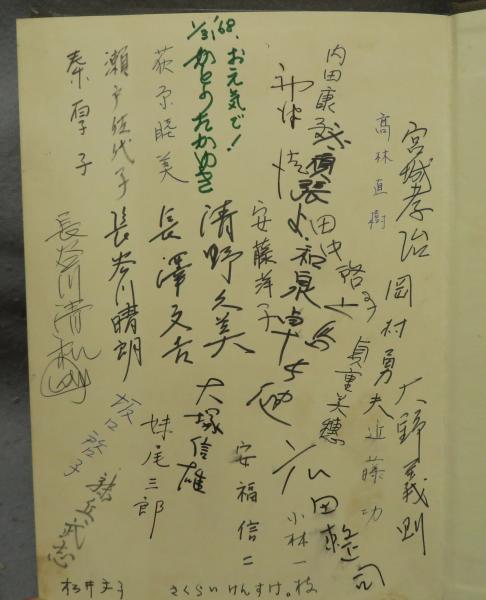 宮城孝治
大野義則
岡村勇夫
近藤功
高林直樹
内田康
田中啓子
貞重美穂
仏田整司
小林一枝
安藤洋子
安福信二
お元気で!
1/31'68
かとうたかゆき
清野久美
大塚信雄
荻原睦美
長澤文吉
妹尾三郎
瀬戸佐代子
長谷川晴朗
坂口啓子
秦厚子
長谷川清
さくらいけんすけ。